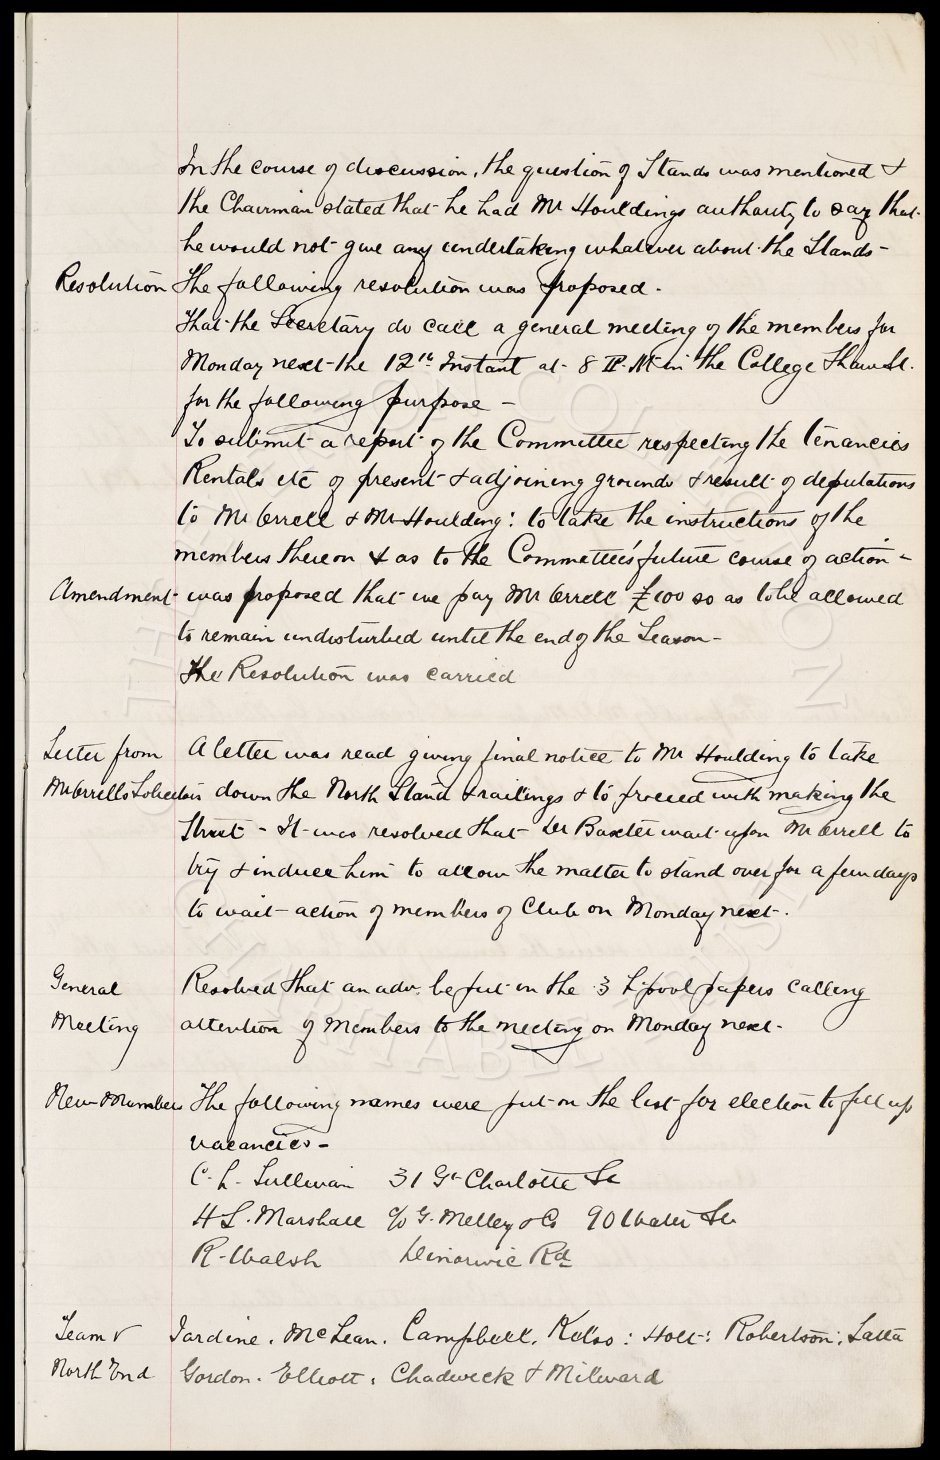 In the course of discussion, the question of Stands was mentioned &
the Chairman stated that he had Mr Houldings authority to say that
he would not give any undertaking whatever about the Stands -
Resolution The following resolution was proposed -
That the Secretary do call a general meeting of the members for
Monday next the 12th Instant at 8 P.M in the College Shaw St.
for the following purpose -
To submit a report of the Committee respecting the tenancies
Rentals etc of present & adjoining grounds & result of deputations
to Mr Orrell & Mr Houlding: to take the instructions of the
members thereon & as to the Committee's future course of action -
Amendment was proposed that we pay Mr Orrell £100 so as to be allowed
to remain undisturbed until the end of the Season -
The Resolution was carried
Letter from A letter was read giving final notice to Mr Houlding to take
Mr Orrells Solicitors down the North Stand & railings & to proceed with making the
Street - It was resolved that Dr Baxter wait upon Mr Orrell to
try & induce him to allow the matter to stand over for a few days
to wait action of members of Club on Monday next -
General Resolved that an adv. be put in the 3 L'pool papers calling
Meeting attention of Members to the meeting on Monday next -
New Members The following names were put on the list for election to fill up
vacancies -
C. L. Sullivan 31 Gt Charlotte St
H S. Marshall c/o G. Melley & Co 90 Water St
R. Walsh Dinorwic Rd
Team v Jardine. McLean. Campbell. Kelso: Holt: Robertson: Latta
North End Gordon. Elliott. Chadwick & Milward